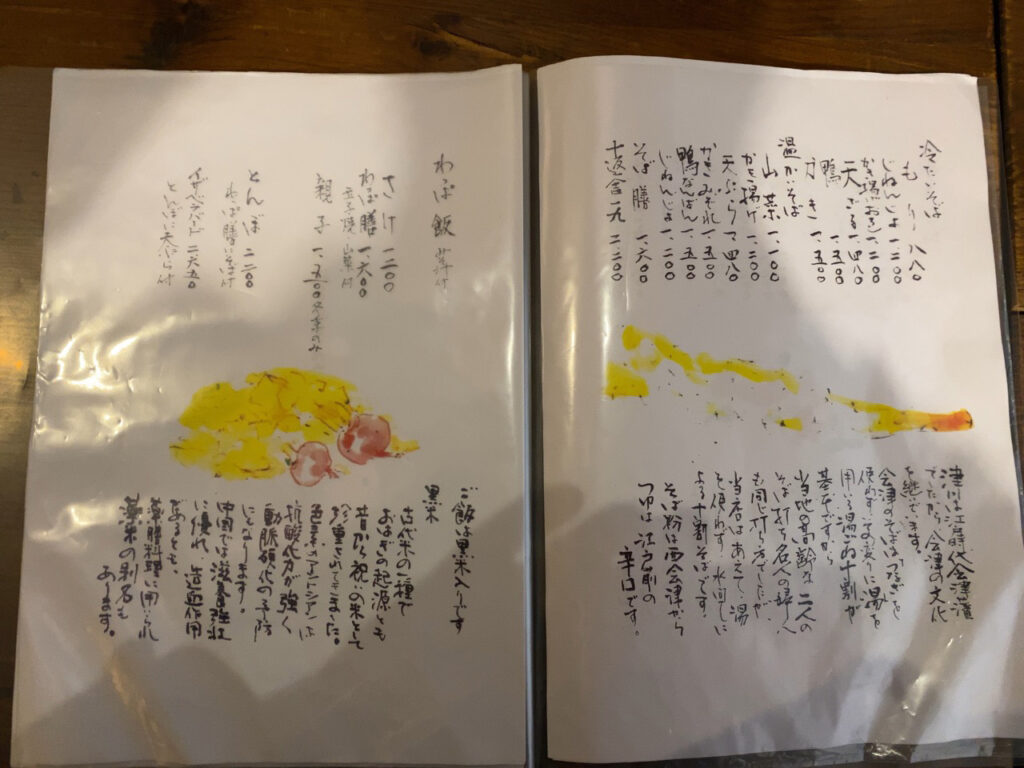 冷たいそば
もり 八八〇
じねんじょ 一、二〇〇
かき揚おろし 一、二〇〇
天ざる 一、四八〇
鴨 一、五〇〇
カキ 一、五〇〇
温かいそば
山菜 一、一〇〇
かき揚げ 一、二〇〇
天ぷら 一、四八〇
かきみぞれ 一、五〇〇
鴨なんばん 一、五〇〇
じねんじょ 一、二〇〇
そば膳 一、六〇〇
十返舎一九 二、二〇〇
津川は江戸時代会津藩
でしたから会津の文化
を継いでます。
会津のそばは「つなぎ」を
使わず、その変りに湯を
用いる湯ごね十割が
基本ですから
当地の高齢な二人の
そば打ち名人の婦人
も同じ打ち方でしたが
当店はあえて、湯
を使わず、水回しに
よる十割そばです。
そば粉は西会津から
つゆは江戸前の
辛口です。
わっぱ飯 巻汁付
さけ 一、二〇〇
わっぱ膳 一、六〇〇
玉子焼 山菜付
親子 一、五〇〇 冬季のみ
とんぼ 二、二〇〇
わっぱ膳にそば付
イザベラバード 二、七五〇
とんぼに天ぷら付
ご飯は黒米入りです
黒米
古代米の一種で
おはぎの起源とも
昔から祝の米として
珍重されてきました。
色素のアントシアンは
抗酸化力が強く
動脈硬化の予防
になります。
中国では滋養強壮
に優れ、造血作用
あるとも、
薬膳料理に用いられ
薬米の別名も
あります。